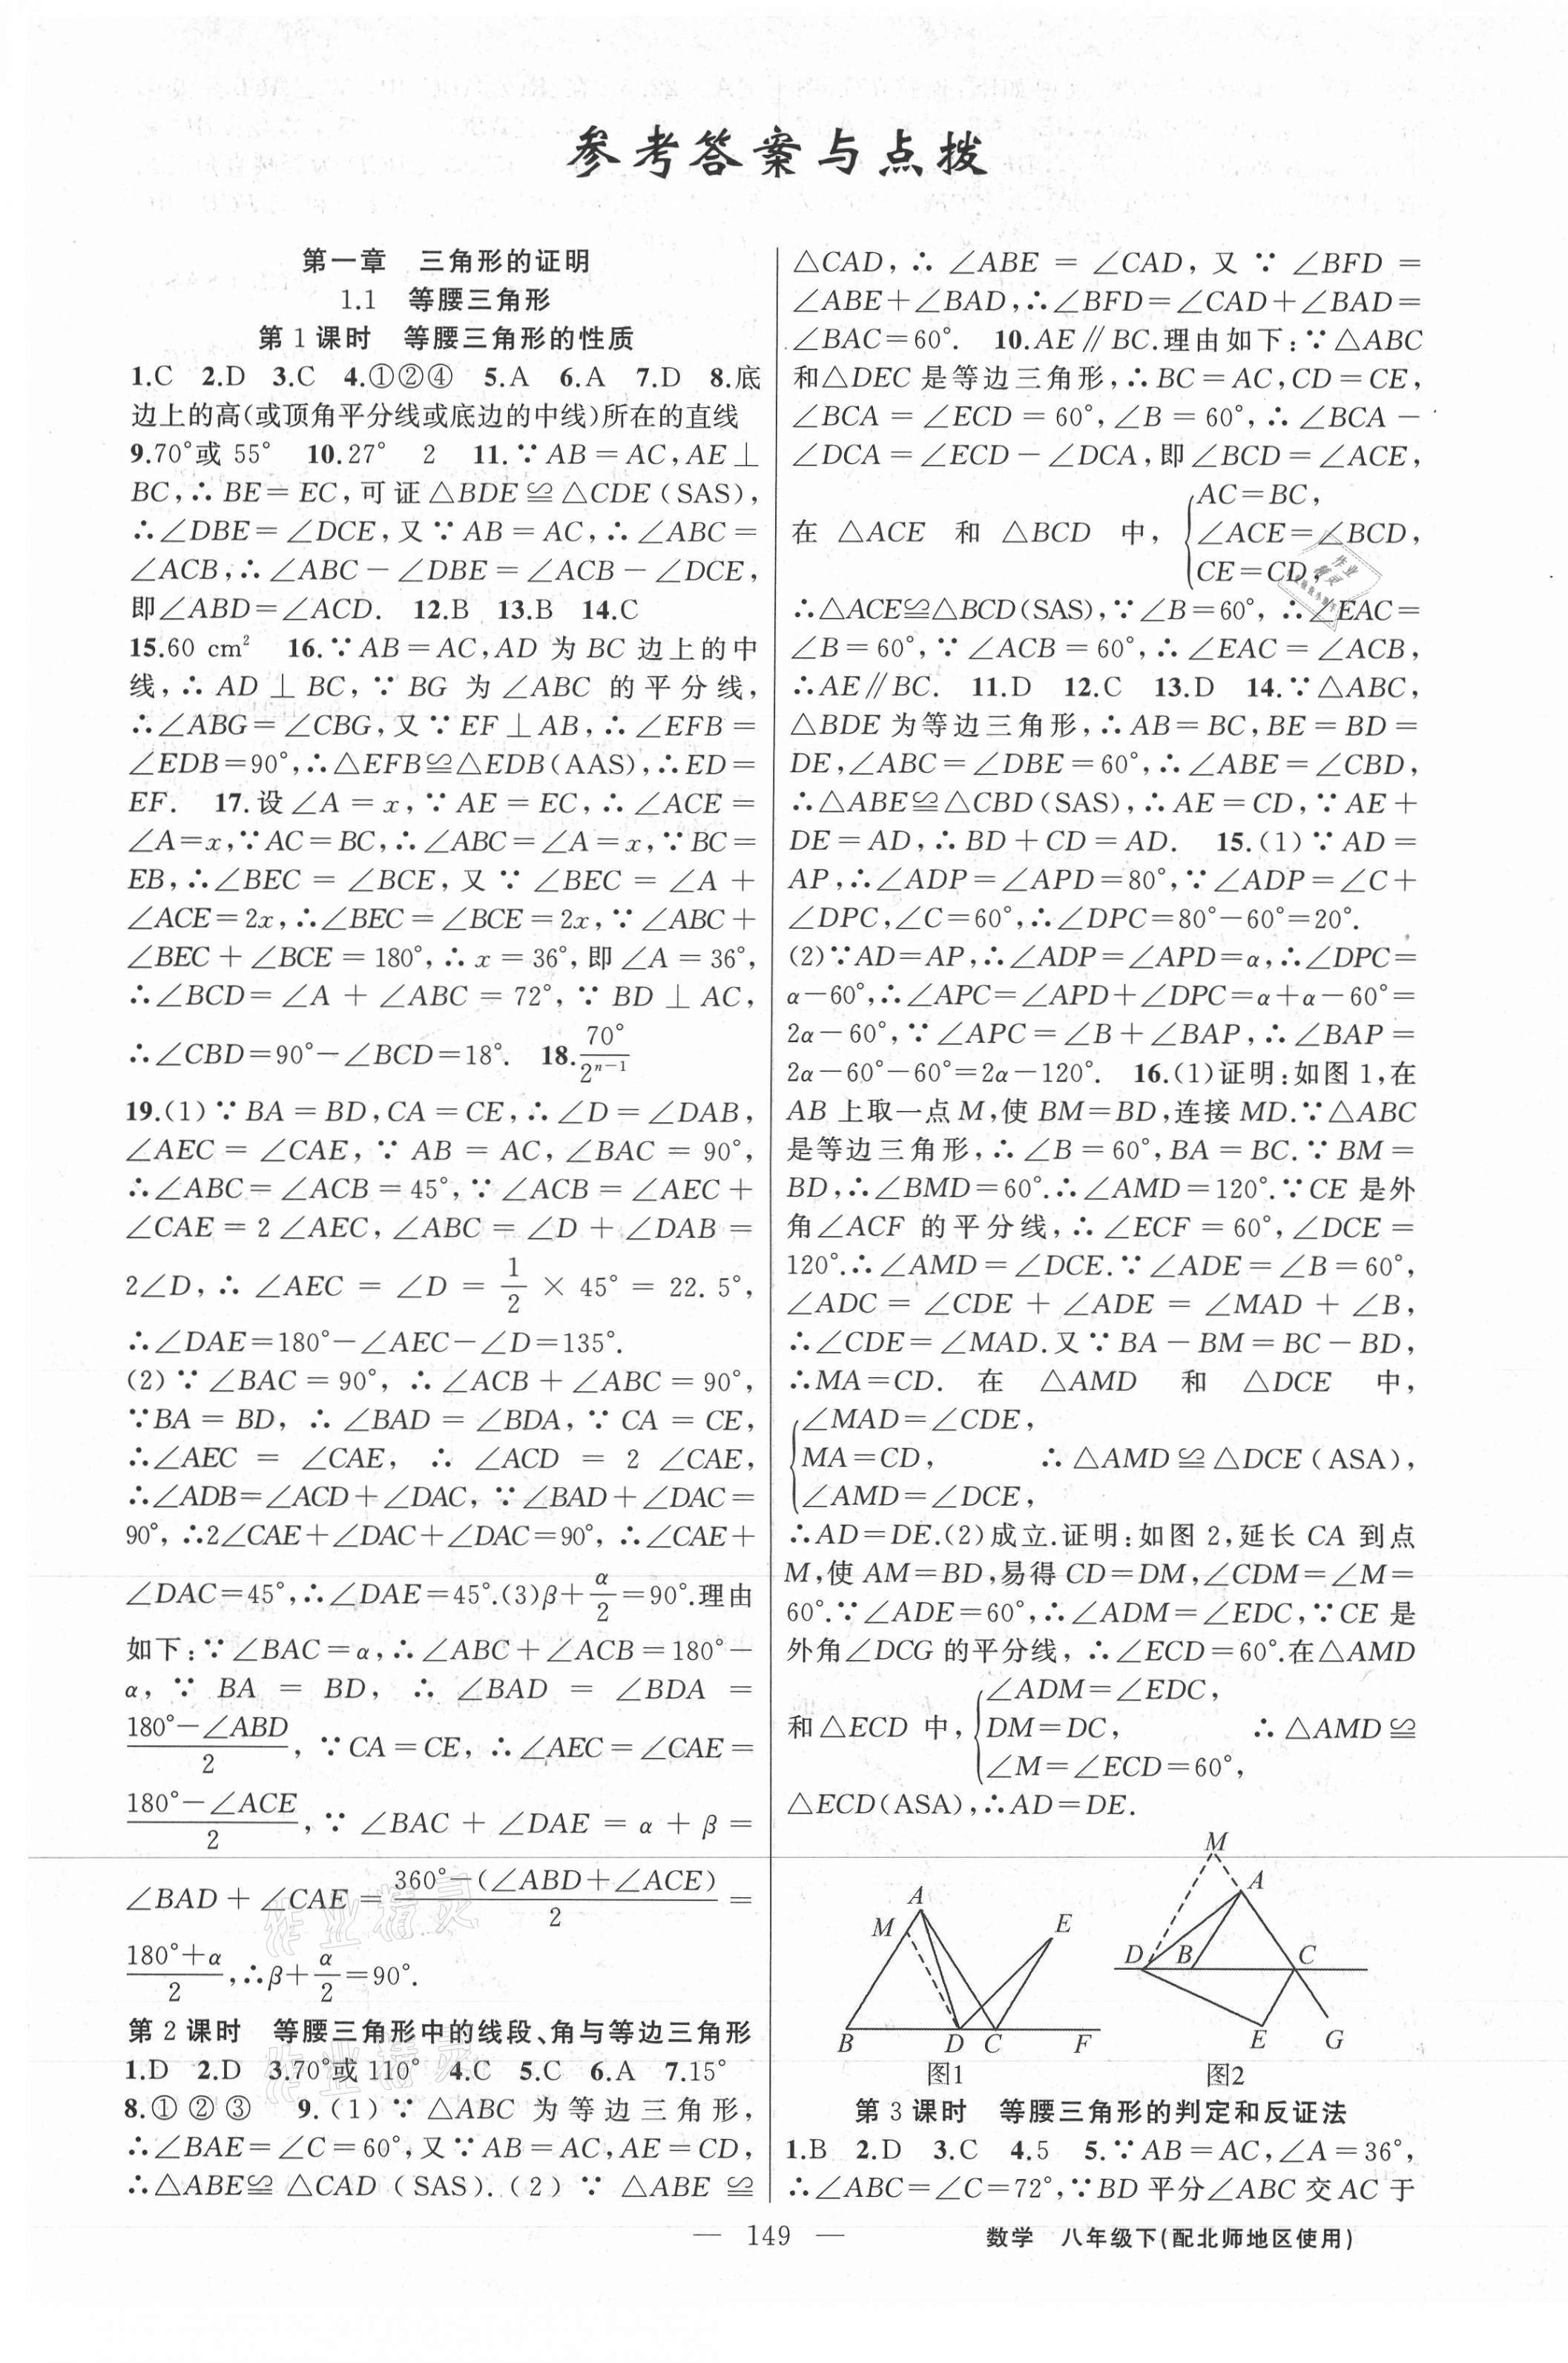 参考答案与点拨
第一章 三角形的证明
1.1 等腰三角形
第1课时 等腰三角形的性质
1.C 2.D 3.C 4.①②④ 5.A 6.A 7.D 8.底
边上的高(或顶角平分线或底边的中线)所在的直线
9.70°或 55° 10.27° 2 11.∵AB=AC,AE⊥
BC,∴BE=EC,可证△BDE≌△CDE(SAS),
∴∠DBE=∠DCE,又∵AB=AC,∴∠ABC=
∠ACB,∴∠ABC-∠DBE=∠ACB-∠DCE,
即∠ABD=∠ACD. 12.B 13.B 14.C
15.60 cm² 16.∵AB=AC,AD 为 BC 边上的中
线,∴AD⊥BC,∵BG 为∠ABC 的平分线,
∴∠ABG=∠CBG,又∵EF⊥AB,∴∠EFB=
∠EDB=90°,∴△EFB≌△EDB(AAS),∴ED=
EF. 17.设∠A=x,∵AE=EC,∴∠ACE=
∠A=x,∵AC=BC,∴∠ABC=∠A=x,∵BC=
EB,∴∠BEC=∠BCE,又∵∠BEC=∠A+
∠ACE=2x,∴∠BEC=∠BCE=2x,∵∠ABC+
∠BEC+∠BCE=180°,∴x=36°,即∠A=36°,
∴∠BCD=∠A+∠ABC=72°,∵BD⊥AC,
∴∠CBD=90°-∠BCD=18°. 18.70°/2ⁿ⁻¹
19.(1)∵BA=BD,CA=CE,∴∠D=∠DAB,
∠AEC=∠CAE,∵AB=AC,∠BAC=90°,
∴∠ABC=∠ACB=45°,∵∠ACB=∠AEC+
∠CAE=2∠AEC,∠ABC=∠D+∠DAB=
2∠D,∴∠AEC=∠D=1/2×45°=22.5°,
∴∠DAE=180°-∠AEC-∠D=135°.
(2)∵∠BAC=90°,∴∠ACB+∠ABC=90°,
∵BA=BD,∴∠BAD=∠BDA,∵CA=CE,
∴∠AEC=∠CAE,∴∠ACD=2∠CAE,
∴∠ADB=∠ACD+∠DAC,∵∠BAD+∠DAC=
90°,∴2∠CAE+∠DAC+∠DAC=90°,∴∠CAE+
∠DAC=45°,∴∠DAE=45°.(3)β+α/2=90°.理由
如下:∵∠BAC=α,∴∠ABC+∠ACB=180°-
α,∵BA=BD,∴∠BAD=∠BDA=
(180°-∠ABD)/2,∵CA=CE,∴∠AEC=∠CAE=
(180°-∠ACE)/2,∵∠BAC+∠DAE=α+β=
∠BAD+∠CAE=(360°-(∠ABD+∠ACE))/2=
(180°+α)/2,∴β+α/2=90°.
第2课时 等腰三角形中的线段、角与等边三角形
1.D 2.D 3.70°或 110° 4.C 5.C 6.A 7.15°
8.①②③ 9.(1)∵△ABC 为等边三角形,
∴∠BAE=∠C=60°,又∵AB=AC,AE=CD,
∴△ABE≌△CAD(SAS).(2)∵△ABE≌
△CAD,∴∠ABE=∠CAD,又∵∠BFD=
∠ABE+∠BAD,∴∠BFD=∠CAD+∠BAD=
∠BAC=60°. 10.AE∥BC.理由如下:∵△ABC
和△DEC 是等边三角形,∴BC=AC,CD=CE,
∠BCA=∠ECD=60°,∠B=60°,∴∠BCA-
∠DCA=∠ECD-∠DCA,即∠BCD=∠ACE,
AC=BC,
在△ACE 和△BCD 中,∠ACE=∠BCD,
CE=CD,
∴△ACE≌△BCD(SAS),∵∠B=60°,∴∠EAC=
∠B=60°,∵∠ACB=60°,∴∠EAC=∠ACB,
∴AE∥BC. 11.D 12.C 13.D 14.∵△ABC,
△BDE 为等边三角形,∴AB=BC,BE=BD=
DE,∠ABC=∠DBE=60°,∴∠ABE=∠CBD,
∴△ABE≌△CBD(SAS),∴AE=CD,∵AE+
DE=AD,∴BD+CD=AD. 15.(1)∵AD=
AP,∴∠ADP=∠APD=80°,∵∠ADP=∠C+
∠DPC,∠C=60°,∴∠DPC=80°-60°=20°.
(2)∵AD=AP,∴∠ADP=∠APD=α,∴∠DPC=
α-60°,∴∠APC=∠APD+∠DPC=α+α-60°=
2α-60°,∵∠APC=∠B+∠BAP,∴∠BAP=
2α-60°-60°=2α-120°. 16.(1)证明:如图 1,在
AB 上取一点 M,使 BM=BD,连接 MD.∵△ABC
是等边三角形,∴∠B=60°,BA=BC.∵BM=
BD,∴∠BMD=60°.∴∠AMD=120°.∵CE 是外
角∠ACF 的平分线,∴∠ECF=60°,∠DCE=
120°.∴∠AMD=∠DCE.∵∠ADE=∠B=60°,
∠ADC=∠CDE+∠ADE=∠MAD+∠B,
∴∠CDE=∠MAD.又∵BA-BM=BC-BD,
∴MA=CD. 在△AMD 和△DCE 中,
∠MAD=∠CDE,
MA=CD, ∴△AMD≌△DCE(ASA),
∠AMD=∠DCE,
∴AD=DE.(2)成立.证明:如图 2,延长 CA 到点
M,使 AM=BD,易得 CD=DM,∠CDM=∠M=
60°.∵∠ADE=60°,∴∠ADM=∠EDC,∵CE 是
外角∠DCG 的平分线,∴∠ECD=60°.在△AMD
∠ADM=∠EDC,
和△ECD 中,DM=DC, ∴△AMD≌
∠M=∠ECD=60°,
△ECD(ASA),∴AD=DE.
A
M
E
B D C F
图1
M
A
D B C
E G
图2
第3课时 等腰三角形的判定和反证法
1.B 2.D 3.C 4.5 5.∵AB=AC,∠A=36°,
∴∠ABC=∠C=72°,∵BD 平分∠ABC 交 AC 于
— 149 — 数学 八年级下(配北师地区使用)
作业精灵
作业精灵